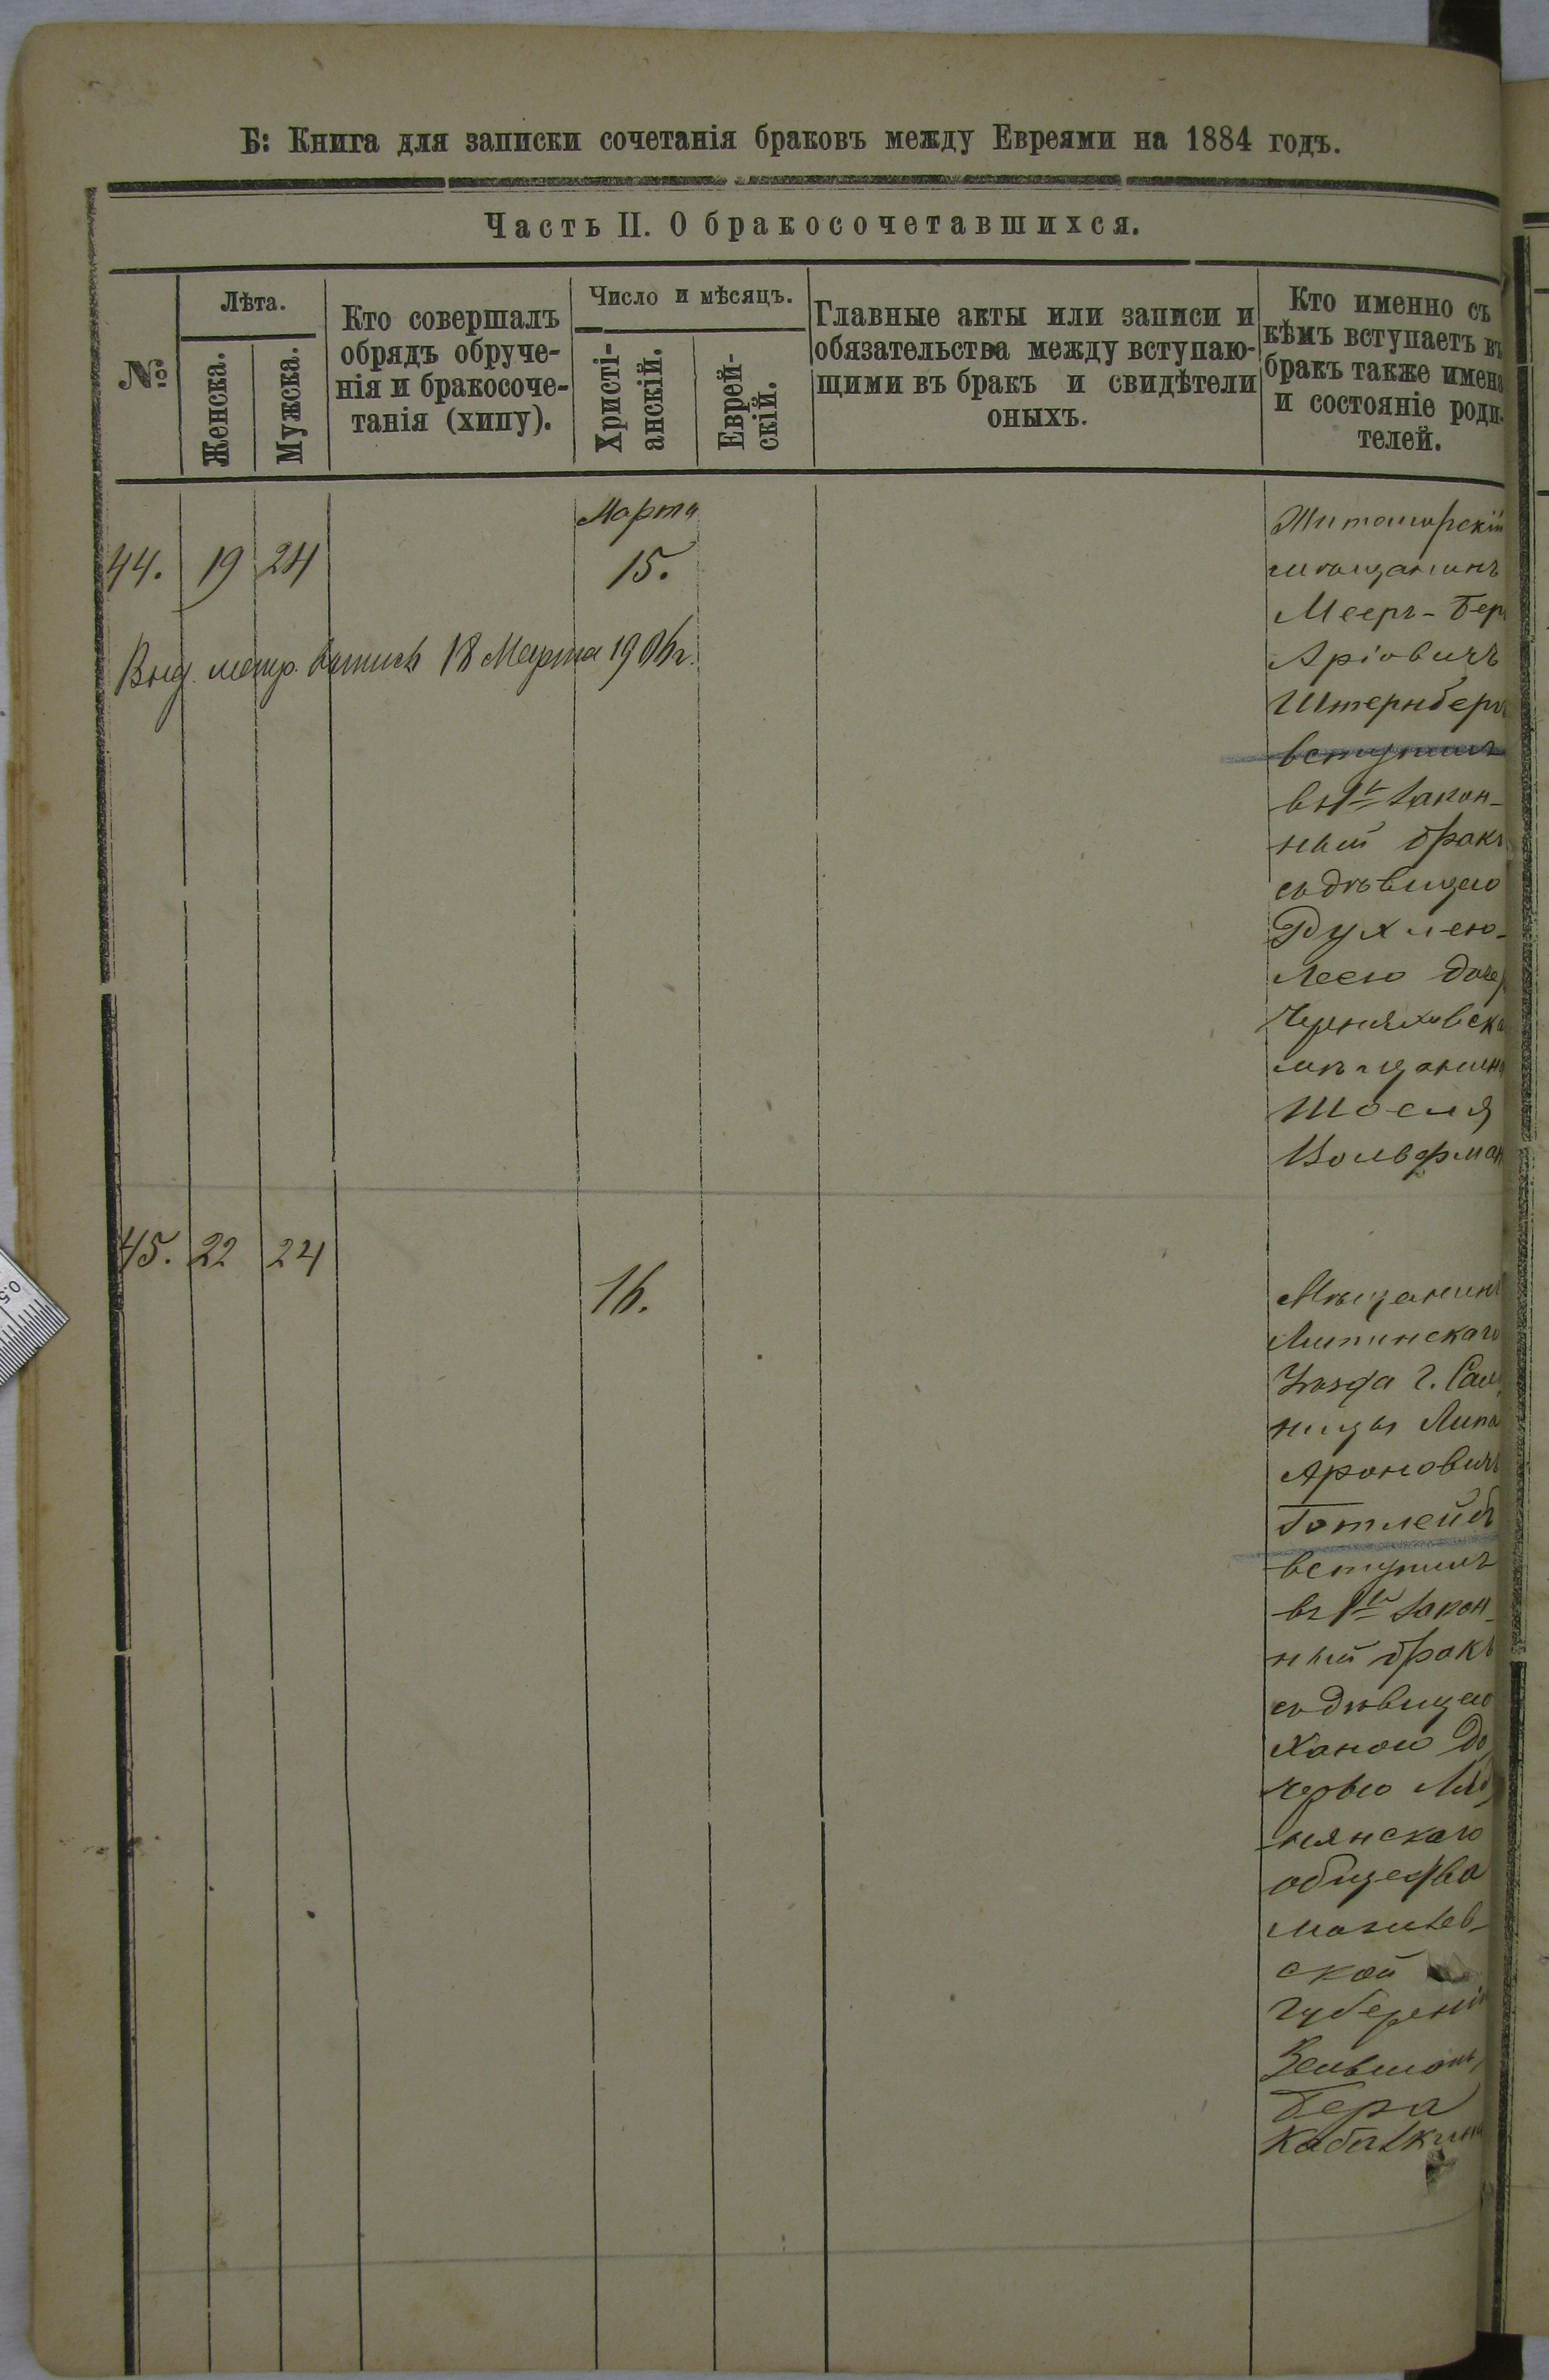 Б: Книга для записки сочетанія браковъ между Евреями на 1884 годъ.
Часть II. О бракосочетавшихся.
№
Лѣта.
Женска.
Мужска.
Кто совершалъ
обрядъ обруче-
нія и бракосоче-
танія (хипу).
Число и мѣсяцъ.
Христі-
анскій.
Еврей-
скій.
Главные акты или записи и
обязательства между вступаю-
щими въ бракъ и свидѣтели
оныхъ.
Кто именно съ
кѣмъ вступаетъ въ
бракъ также имена
и состояніе роди-
телей.
44. 19 24
Марта
15.
Выд. метр. выпись 18 Марта 1906 г.
Житомирскій
мѣщанинъ
Мееръ-Бер
Аріовичъ
Штернберг
вступилъ
въ 1й закон-
ный бракъ
съ дѣвицею
Рухлею-
Леею дочер
Черняховска
мѣщанина
Шоеля
Вольфман
45. 22 24
16.
Мѣщанинъ
Литинскаго
Уѣзда г. Саль
ницы Липа
Ароновичъ
Готлейб
вступилъ
въ 1й закон-
ный бракъ
съ дѣвицею
Ханою до
черью Ляд
нянскаго
общества
могилев-
ской
губерніи
Зельман
Бера
Кабаткина
0.5